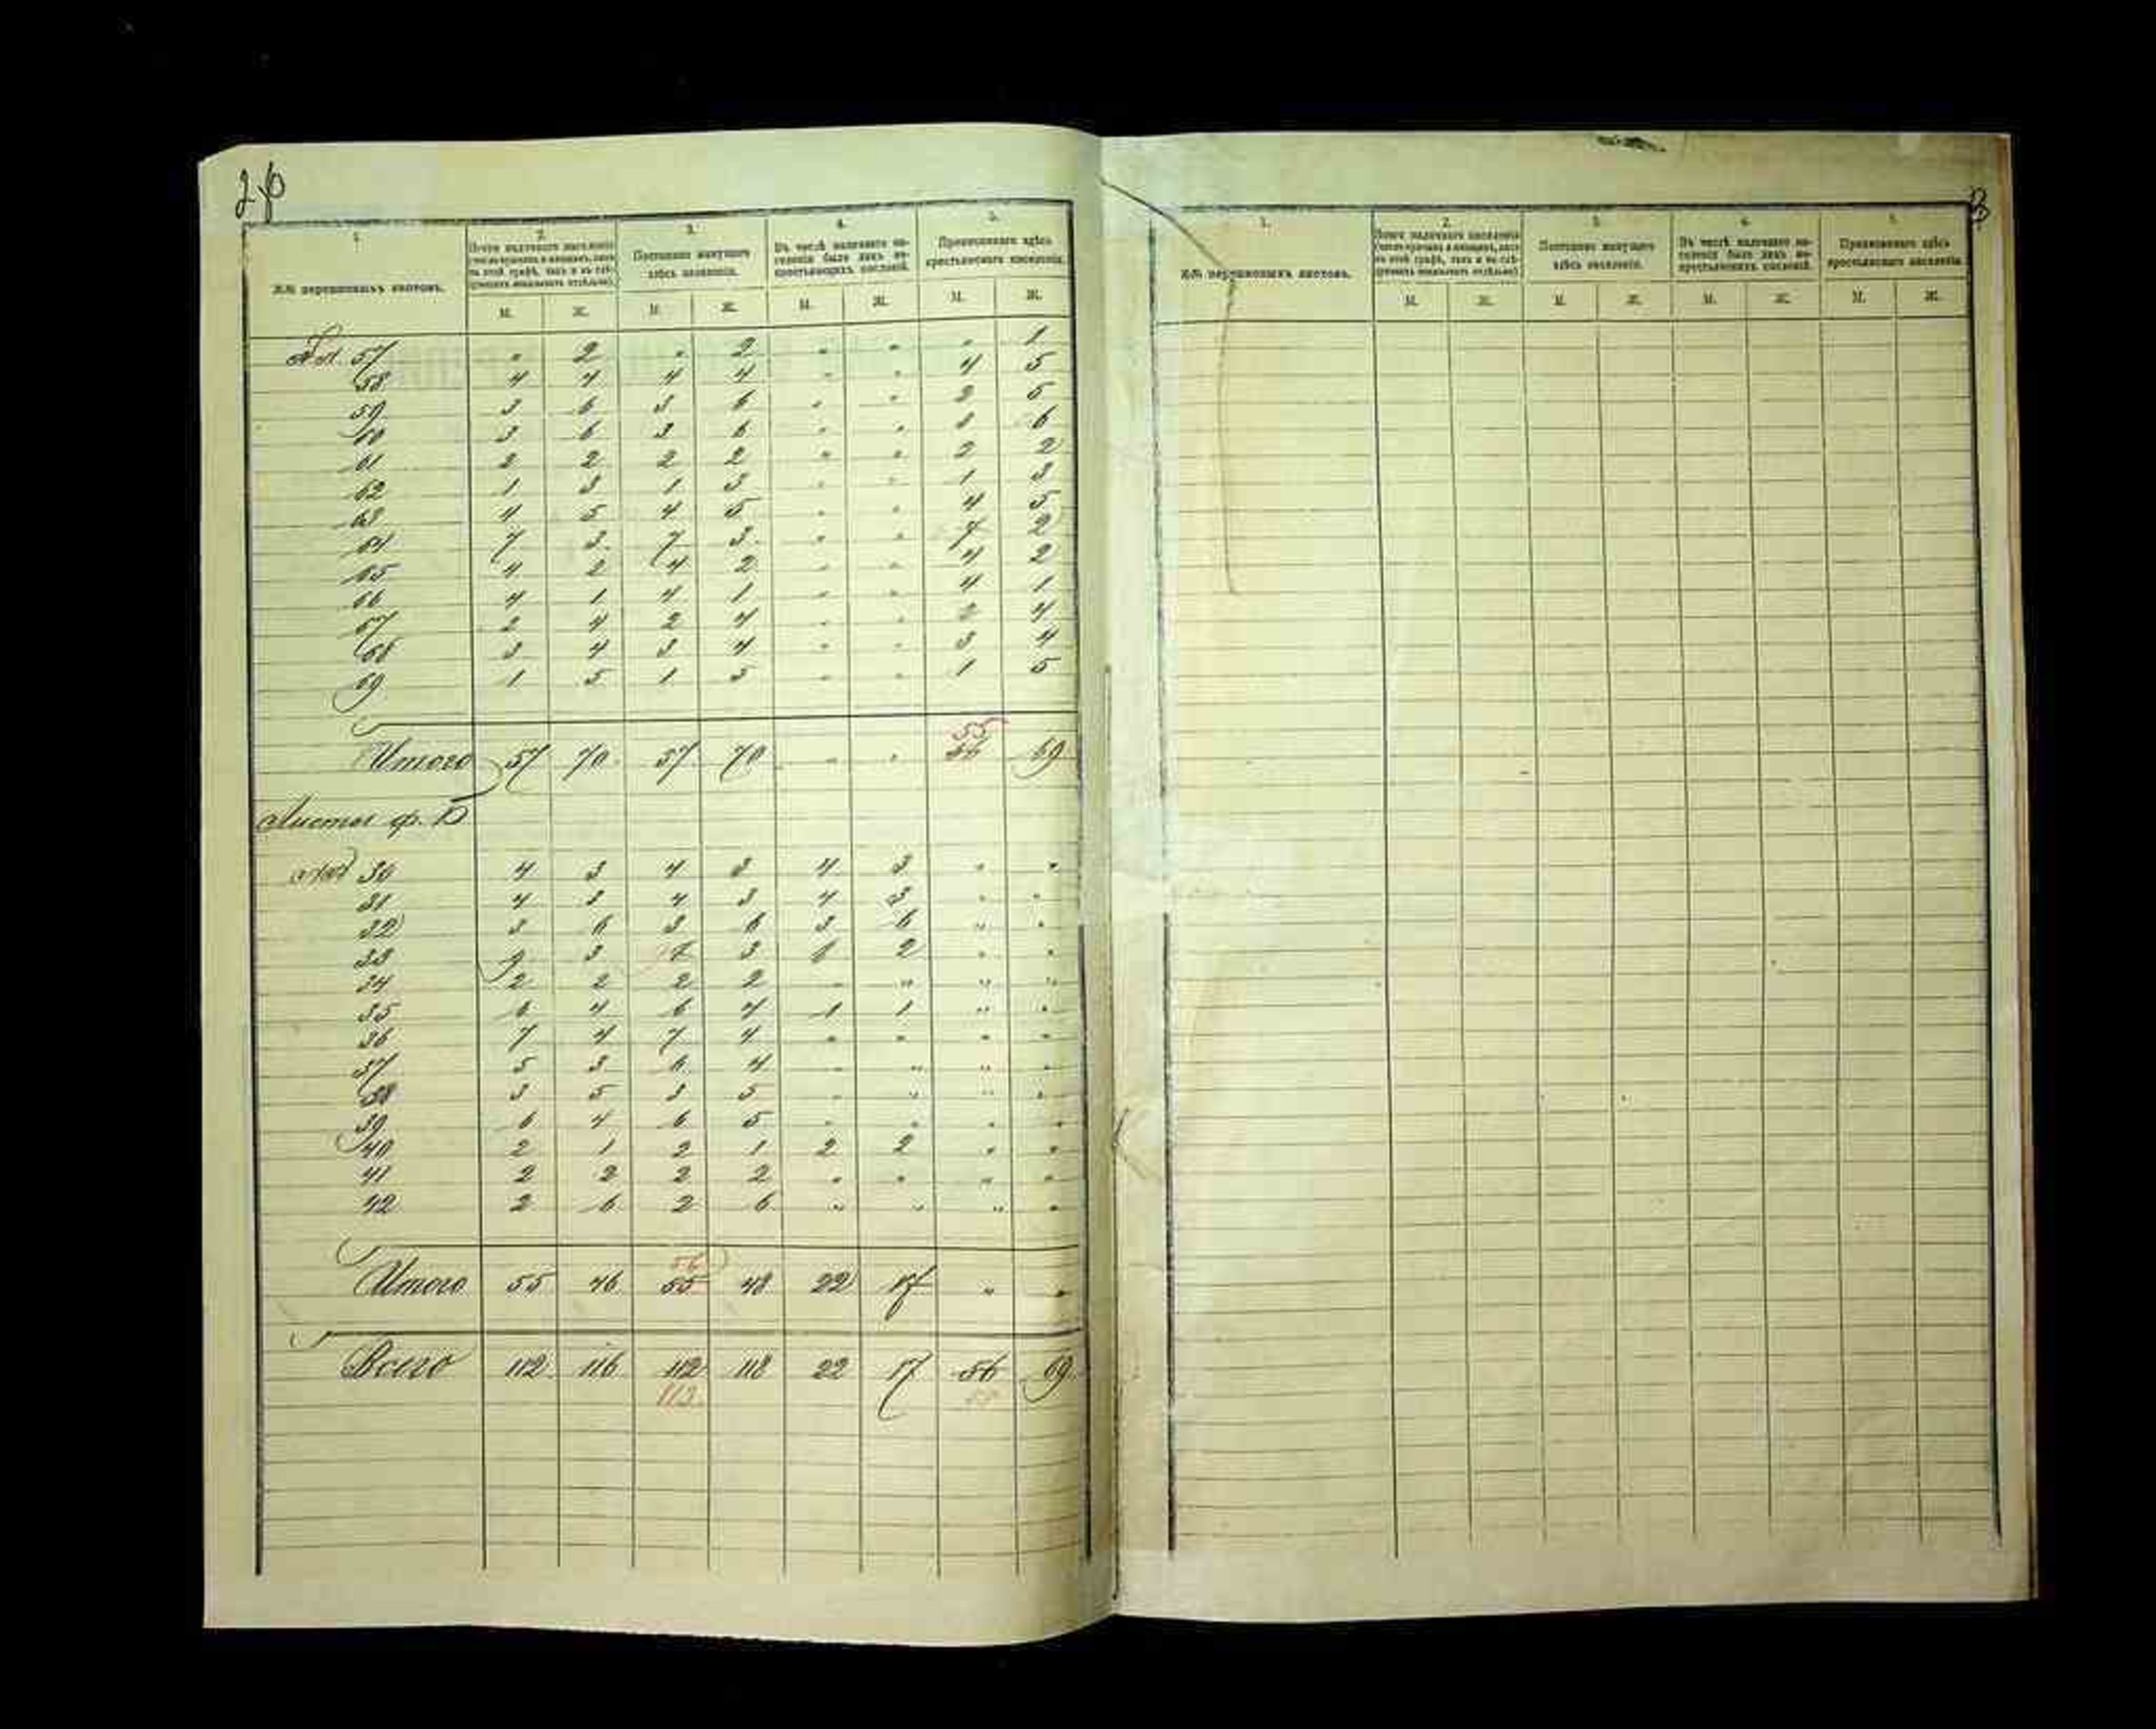 2
1. 2. 3. 4. 5.
№№ переписныхъ листовъ. Всего наличнаго населенія (число мужчинъ и женщинъ, какъ въ этой графѣ, такъ и въ слѣдующихъ показывать отдѣльно). Постоянно живущаго здѣсь населенія. Въ числѣ наличнаго населенія было лицъ некрестьянскихъ сословій. Приписаннаго здѣсь крестьянскаго населенія.
М. Ж. М. Ж. М. Ж. М. Ж.
57 " 2 " 2 " " " 1
58 4 4 4 4 " " 4 5
59 3 6 3 6 " " 2 5
60 3 6 3 6 " " 3 6
61 2 2 2 2 " " 2 2
62 1 3 1 3 " " 1 3
63 4 5 4 5 " " 4 5
64 7 3 7 3 " " 7 2
65 4 2 4 2 " " 4 2
66 4 1 4 1 " " 4 1
67 2 4 2 4 " " 2 4
68 3 4 3 4 " " 3 4
69 1 5 1 5 " " 1 5
55
Итого 57 70 57 70 " " 56 69
Листы ф. Б
30 4 3 4 3 4 3 " "
31 4 3 4 3 4 3 " "
32 3 6 3 6 3 6 " "
33 9 3 3 2 " "
34 2 2 2 2 " " " "
35 6 4 6 4 1 1 " "
36 7 4 7 4 " " " "
37 5 3 6 4 " " " "
38 3 5 3 5 " " " "
39 6 4 6 5 " " " "
40 2 1 2 1 2 2 " "
41 2 2 2 2 " " " "
42 2 6 2 6 " " " "
56
Итого 55 46 55 48 22 17 " "
Всего 112 116 112 118 22 17 56 69
113
3
1. 2. 3. 4. 5.
№№ переписныхъ листовъ. Всего наличнаго населенія (число мужчинъ и женщинъ, какъ въ этой графѣ, такъ и въ слѣдующихъ показывать отдѣльно). Постоянно живущаго здѣсь населенія. Въ числѣ наличнаго населенія было лицъ некрестьянскихъ сословій. Приписаннаго здѣсь крестьянскаго населенія.
М. Ж. М. Ж. М. Ж. М. Ж.